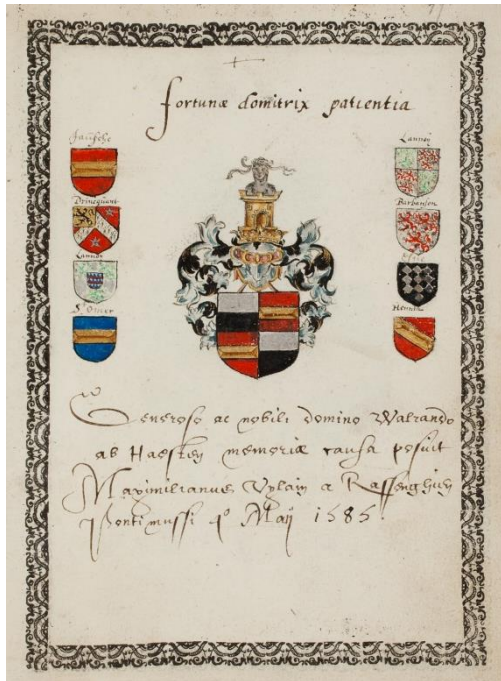 fortunæ domitrix patientia
Lannoy
Barbanson
Drinequant
Lannoy
S. Omer
Hennin
Generoso ac nobili domino Walrando
ab Haesten memoriæ causa posuit
Maximilianus Vylain a Rassenghien
Pontimussi Maij 1585.